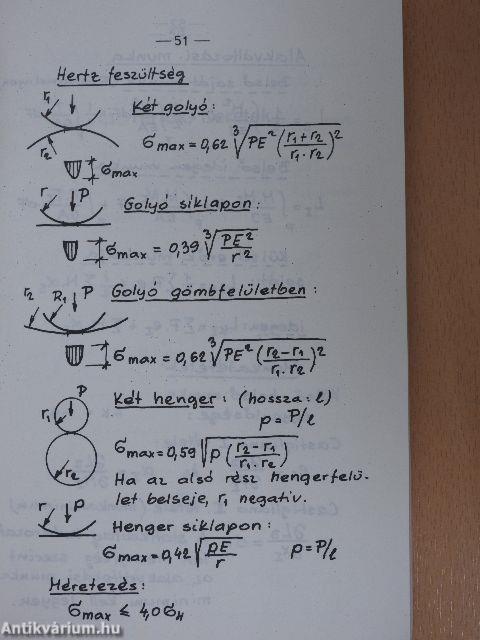 —51—
Hertz feszültség
r₁
r₂
Két golyó:
σmax = 0,62 ∛(PE² (r₁+r₂ / r₁.r₂)²)
σmax
r P
Golyó síklapon:
σmax = 0,39 ∛(PE² / r²)
r₂ R₁ P
Golyó gömbfelületben:
σmax = 0,62 ∛(PE² (r₂−r₁ / r₁.r₂)²)
P
r₁
r₂
Két henger: (hossza: l)
p = P/l
σmax = 0,59 √(p (r₂−r₁ / r₁.r₂))
Ha az alsó rész hengerfelü-
let belseje, r₁ negatív.
r P
Henger síklapon:
σmax = 0,42 √(pE / r) p = P/l
Méretezés:
σmax ≤ 4,0 σH
Antikvárium.hu